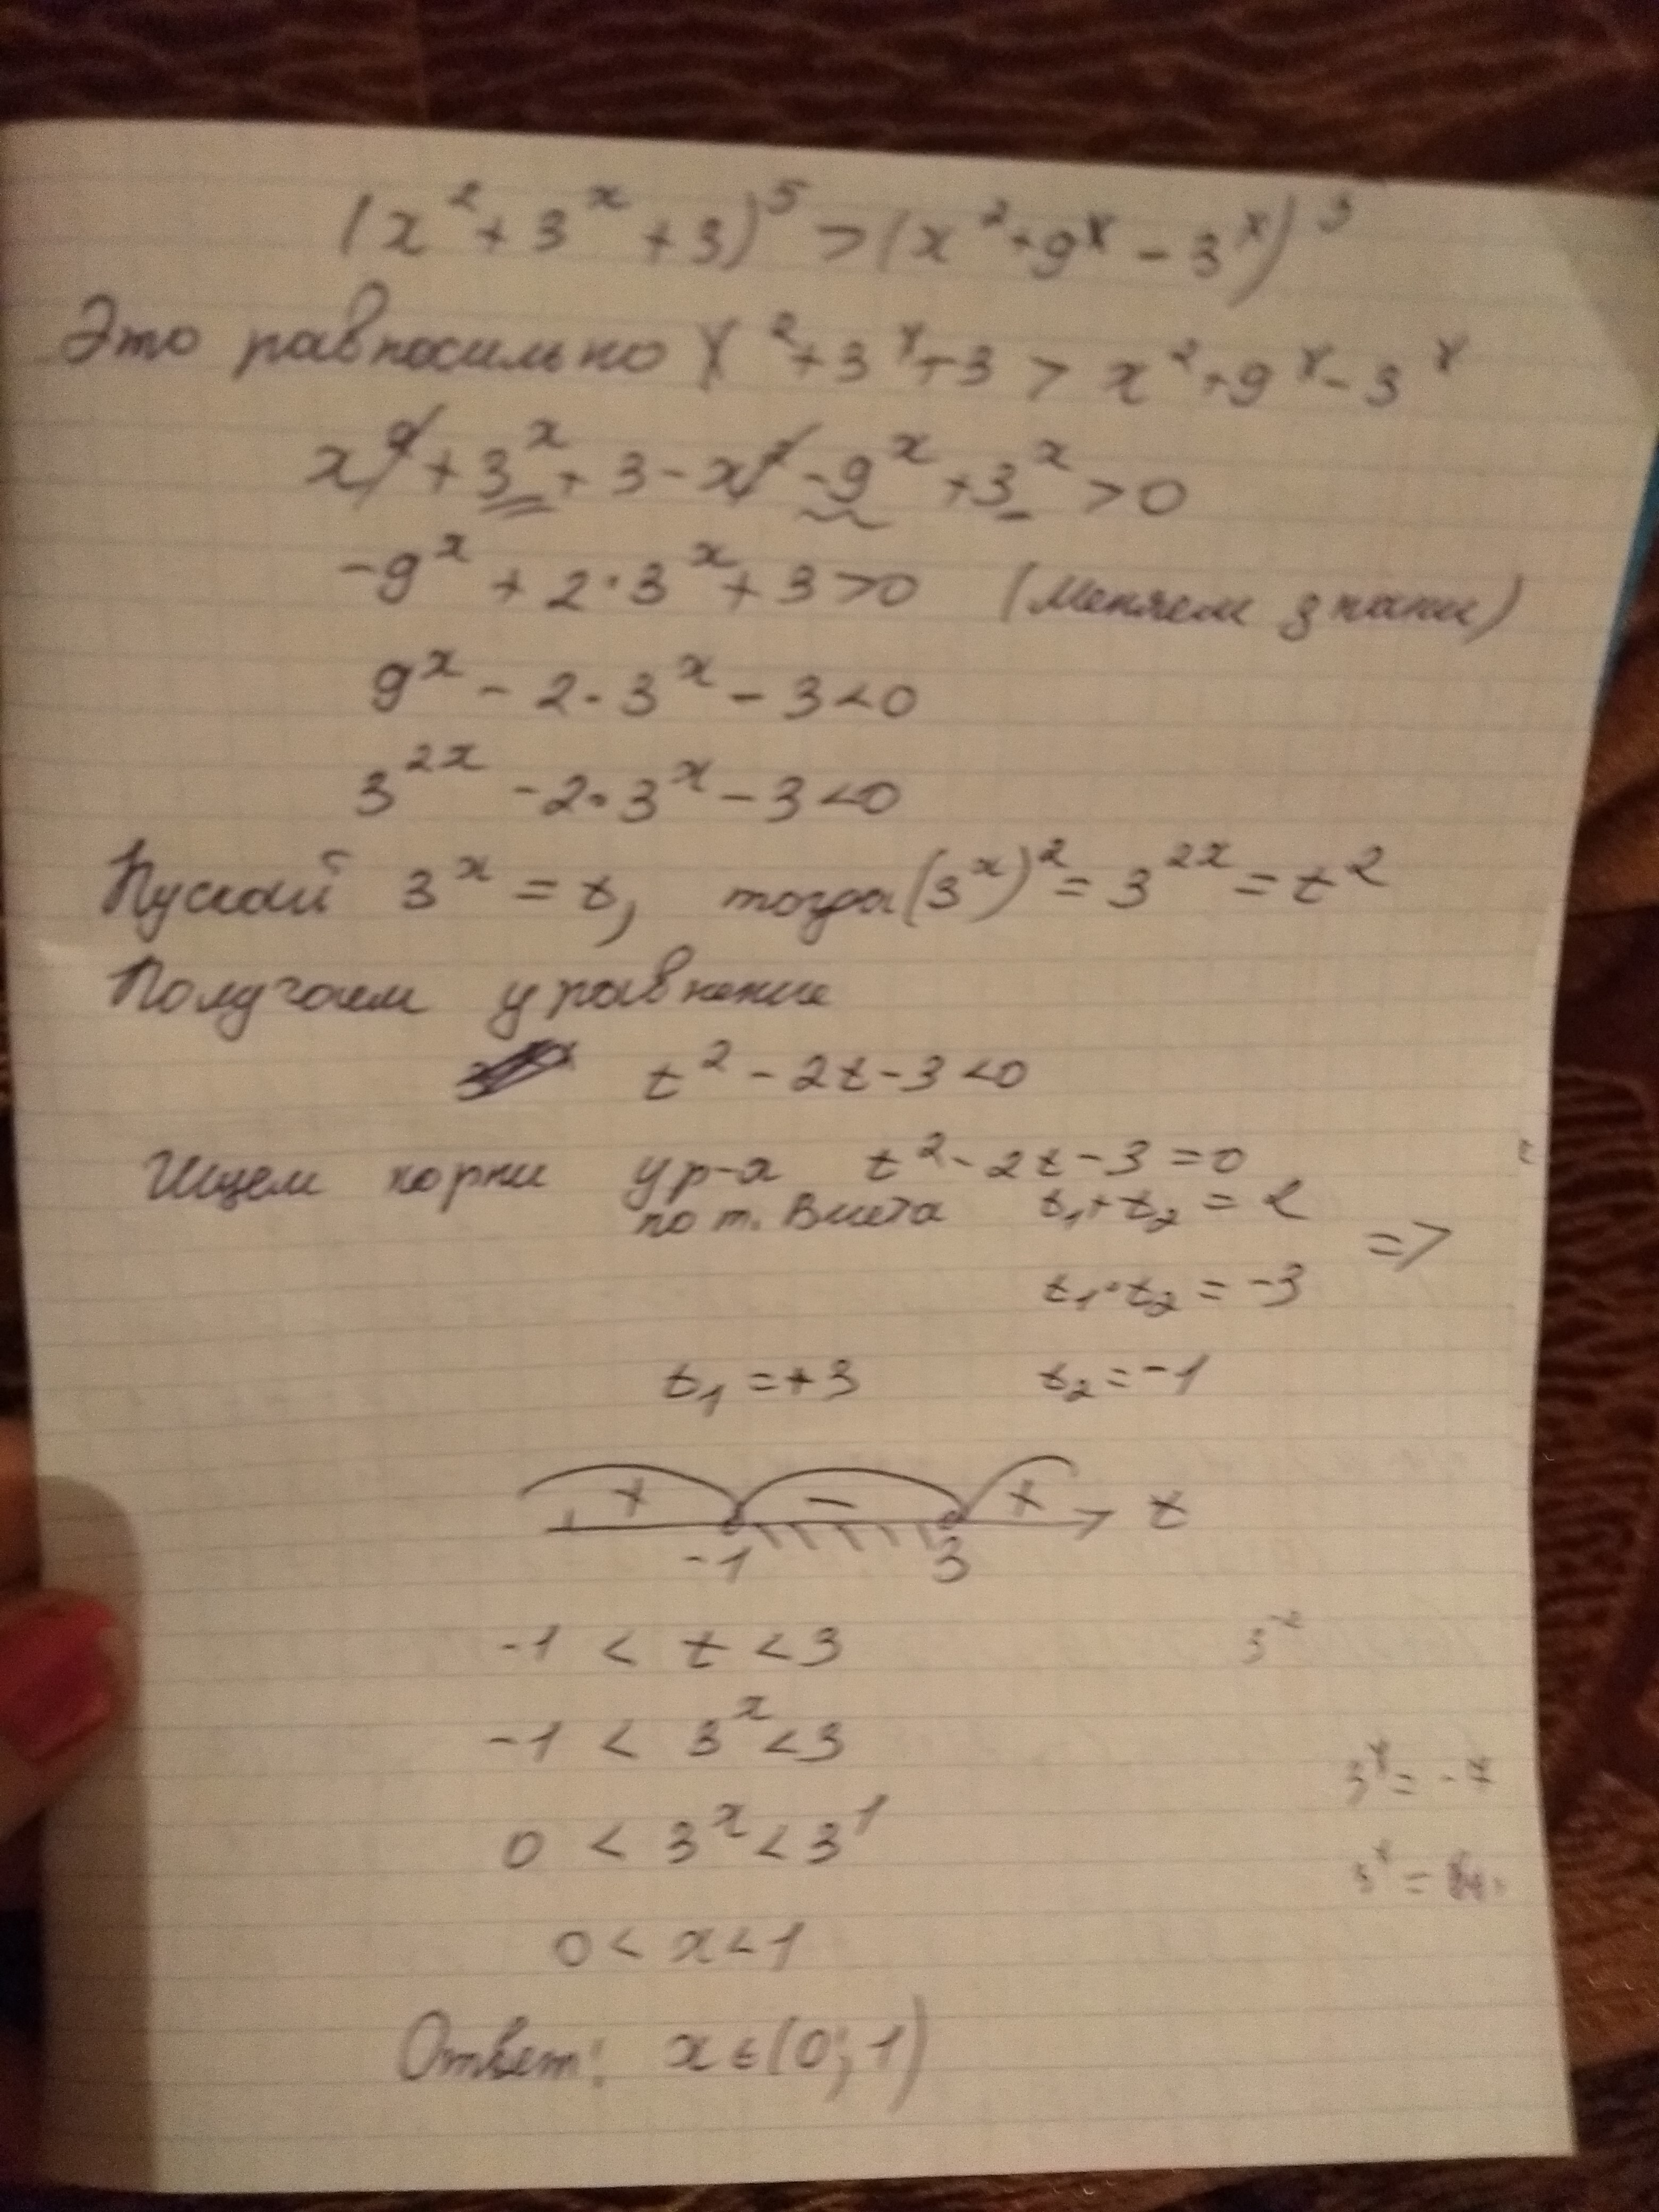 (x² + 3ˣ + 3)⁵ > (x² + 9ˣ - 3ˣ)⁵
Это равносильно x² + 3ˣ + 3 > x² + 9ˣ - 3ˣ
x² + 3ˣ + 3 - x² - 9ˣ + 3ˣ > 0
-9ˣ + 2·3ˣ + 3 > 0 (меняем знаки)
9ˣ - 2·3ˣ - 3 < 0
3²ˣ - 2·3ˣ - 3 < 0
Пускай 3ˣ = t, тогда (3ˣ)² = 3²ˣ = t²
Получаем уравнение
t² - 2t - 3 < 0
Ищем корни ур-я t² - 2t - 3 = 0
по т. Виета t₁ + t₂ = 2 =>
t₁·t₂ = -3
t₁ = +3 t₂ = -1
+ - + t
-1 3
-1 < t < 3
-1 < 3ˣ < 3
0 < 3ˣ < 3¹
0 < x < 1
Ответ: x ∈ (0; 1)